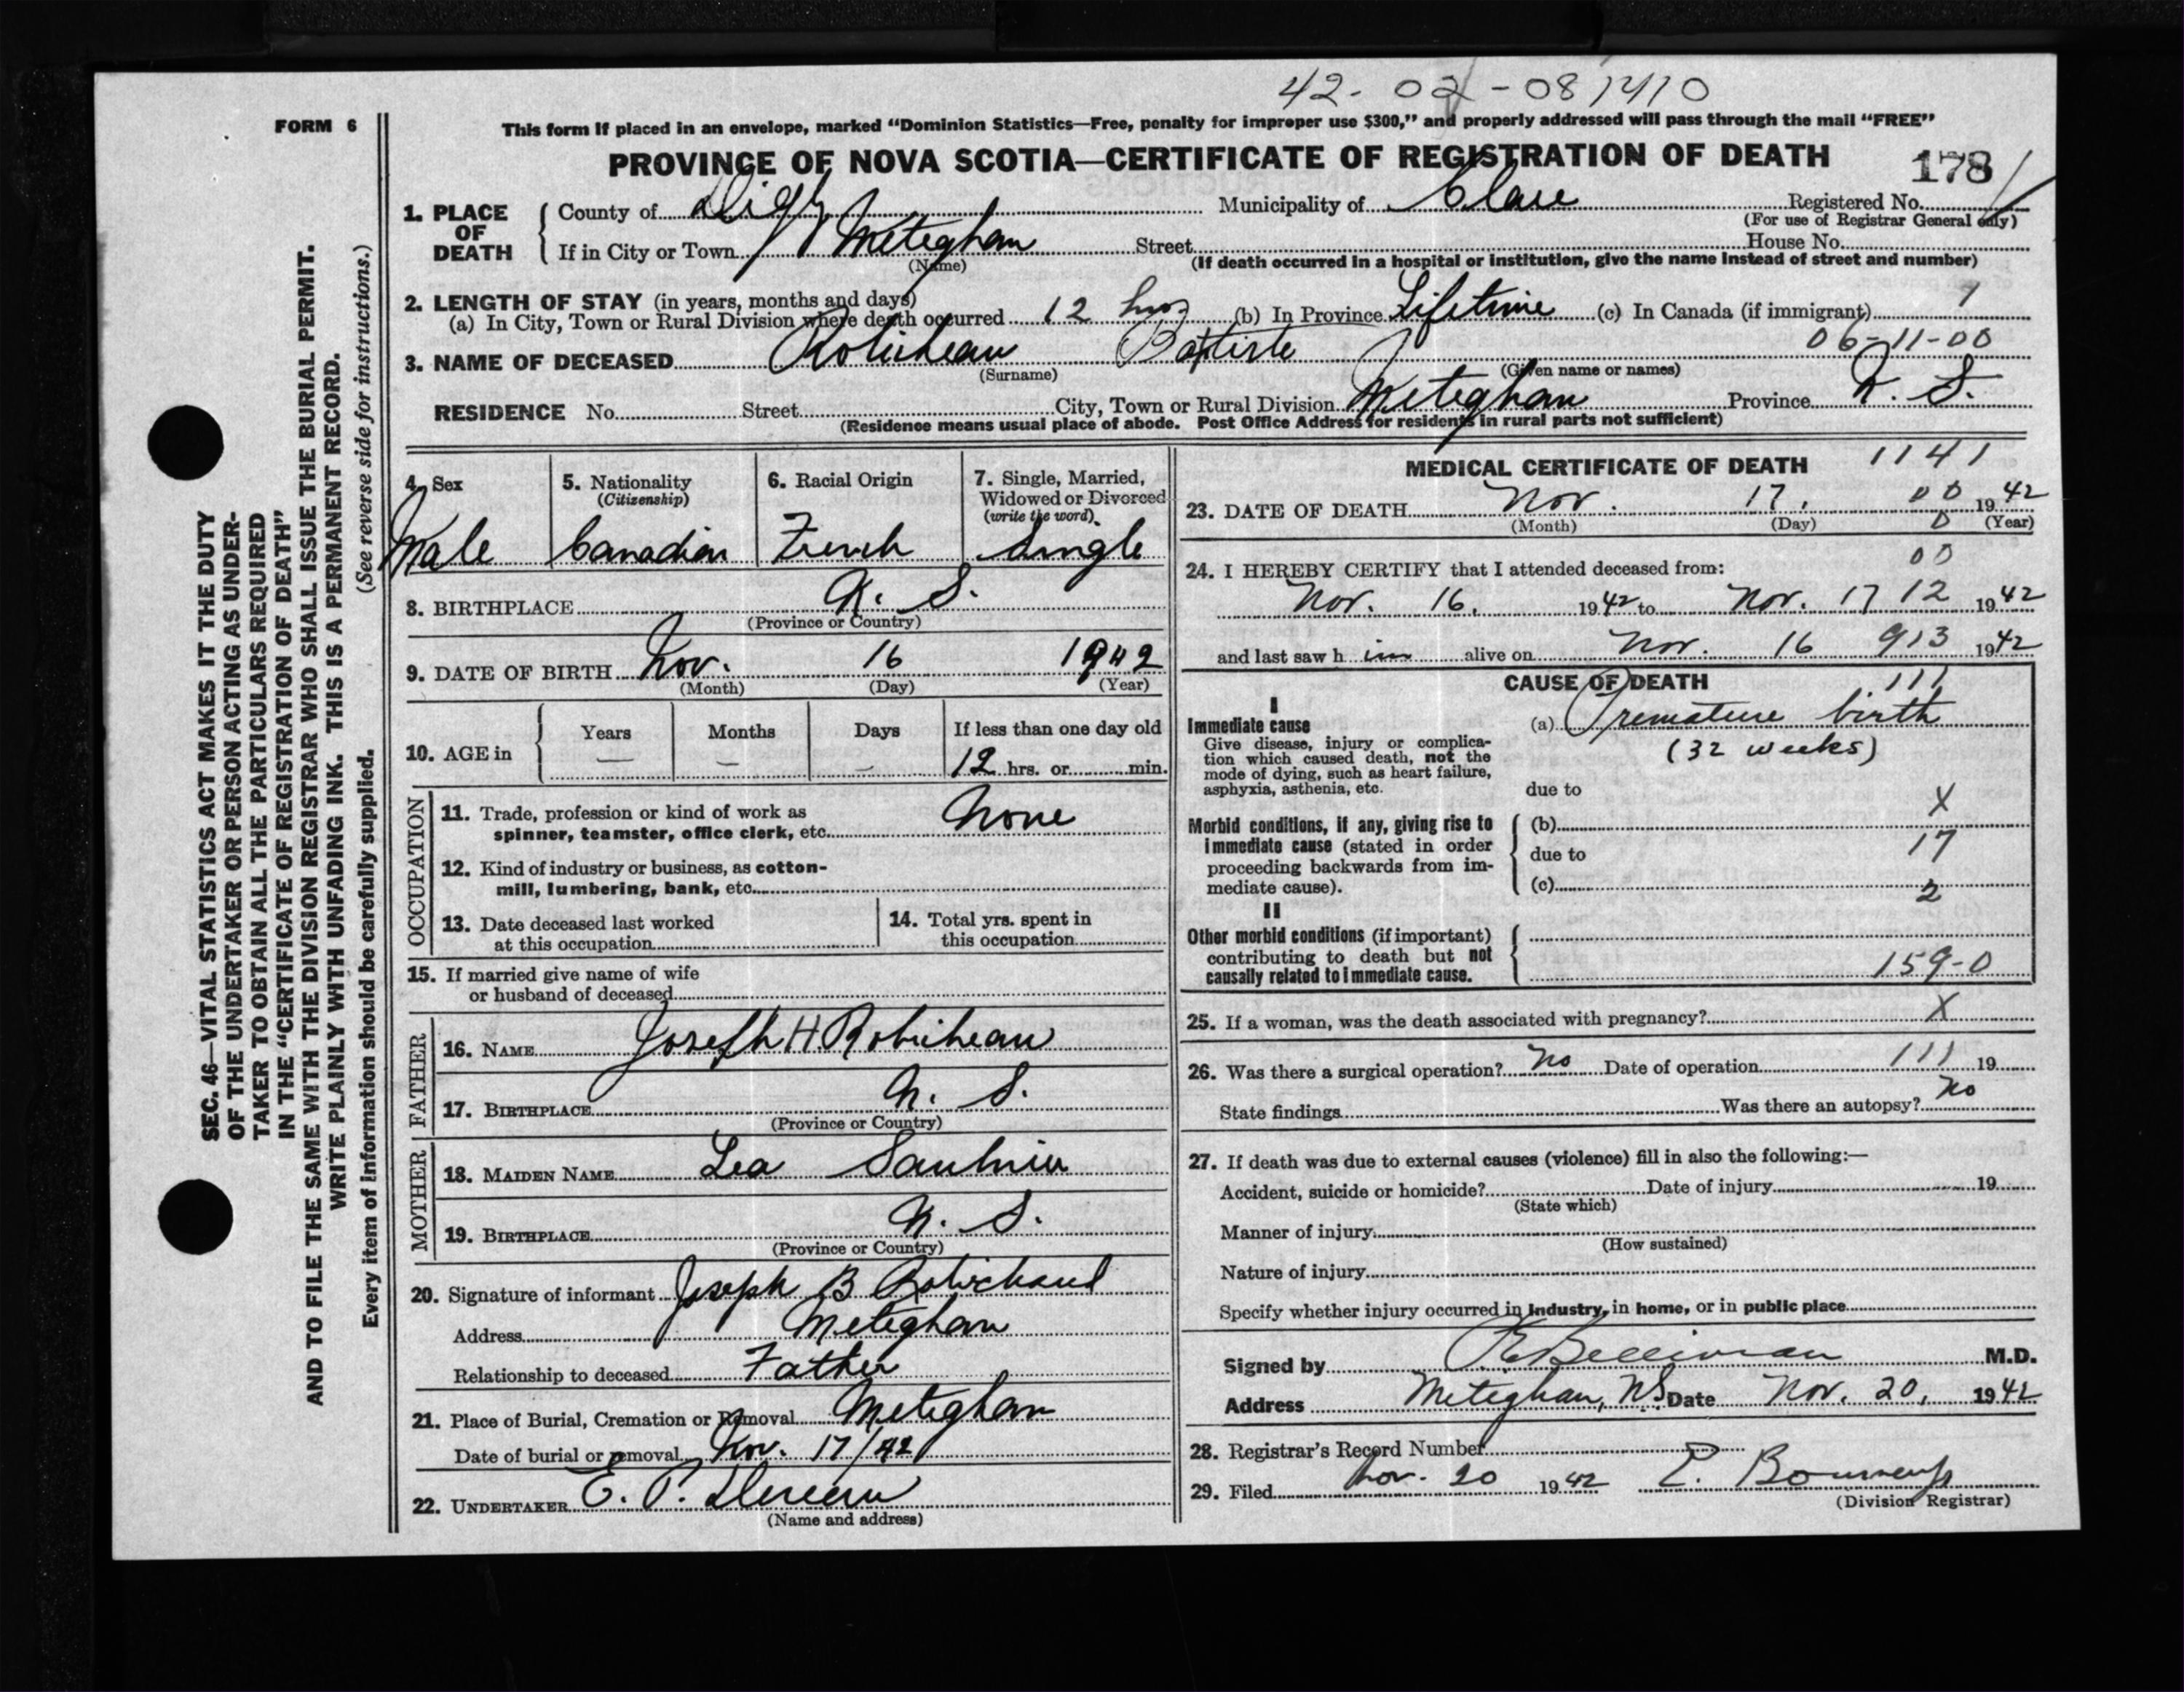 42-02-081410
FORM 6
This form if placed in an envelope, marked "Dominion Statistics—Free, penalty for improper use $300," and properly addressed will pass through the mail "FREE"
PROVINCE OF NOVA SCOTIA—CERTIFICATE OF REGISTRATION OF DEATH 178
1. PLACE OF DEATH
County of Digby Municipality of Clare Registered No.
(For use of Registrar General only)
If in City or Town Meteghan Street House No.
(Name) (If death occurred in a hospital or institution, give the name instead of street and number)
2. LENGTH OF STAY (in years, months and days)
(a) In City, Town or Rural Division where death occurred 12 hrs (b) In Province Lifetime (c) In Canada (if immigrant) 1
06-11-00
3. NAME OF DECEASED Robicheau Baptiste
(Surname) (Given name or names)
RESIDENCE No. Street City, Town or Rural Division Meteghan Province N. S.
(Residence means usual place of abode. Post Office Address for residents in rural parts not sufficient)
4. Sex
Male
5. Nationality
(Citizenship)
Canadian
6. Racial Origin
French
7. Single, Married,
Widowed or Divorced
(write the word)
Single
8. BIRTHPLACE N. S.
(Province or Country)
9. DATE OF BIRTH Nov. 16 1942
(Month) (Day) (Year)
10. AGE in
Years Months Days If less than one day old
— — — 12 hrs. or min.
OCCUPATION
11. Trade, profession or kind of work as
spinner, teamster, office clerk, etc. None
12. Kind of industry or business, as cotton-
mill, lumbering, bank, etc.
13. Date deceased last worked
at this occupation
14. Total yrs. spent in
this occupation
15. If married give name of wife
or husband of deceased
FATHER
16. NAME Joseph H Robicheau
17. BIRTHPLACE N. S.
(Province or Country)
MOTHER
18. MAIDEN NAME Lea Saulnier
19. BIRTHPLACE N. S.
(Province or Country)
20. Signature of informant Joseph B Robichaud
Address Meteghan
Relationship to deceased Father
21. Place of Burial, Cremation or Removal Meteghan
Date of burial or removal Nov. 17/42
22. UNDERTAKER E. P.
(Name and address)
MEDICAL CERTIFICATE OF DEATH 1141
23. DATE OF DEATH Nov. 17, 00 1942
(Month) (Day) 0 (Year)
00
24. I HEREBY CERTIFY that I attended deceased from:
Nov. 16, 1942 to Nov. 17 12 1942
and last saw h im alive on Nov. 16 913 1942
CAUSE OF DEATH 111
I
Immediate cause
Give disease, injury or complica-
tion which caused death, not the
mode of dying, such as heart failure,
asphyxia, asthenia, etc.
(a) Premature birth
(32 weeks)
due to
X
Morbid conditions, if any, giving rise to
immediate cause (stated in order
proceeding backwards from im-
mediate cause).
(b)
due to 17
(c) 2
II
Other morbid conditions (if important)
contributing to death but not
causally related to immediate cause.
159-0
25. If a woman, was the death associated with pregnancy? X
26. Was there a surgical operation? No Date of operation 111 19
State findings Was there an autopsy? No
27. If death was due to external causes (violence) fill in also the following:—
Accident, suicide or homicide? Date of injury 19
(State which)
Manner of injury
(How sustained)
Nature of injury
Specify whether injury occurred in industry, in home, or in public place
Signed by M.D.
Address Meteghan, NS. Date Nov. 20, 1942
28. Registrar's Record Number
29. Filed Nov. 20 1942 E.
(Division Registrar)
SEC. 46—VITAL STATISTICS ACT MAKES IT THE DUTY
OF THE UNDERTAKER OR PERSON ACTING AS UNDER-
TAKER TO OBTAIN ALL THE PARTICULARS REQUIRED
IN THE "CERTIFICATE OF REGISTRATION OF DEATH"
AND TO FILE THE SAME WITH THE DIVISION REGISTRAR WHO SHALL ISSUE THE BURIAL PERMIT.
WRITE PLAINLY WITH UNFADING INK. THIS IS A PERMANENT RECORD.
(See reverse side for instructions.)
Every item of information should be carefully supplied.